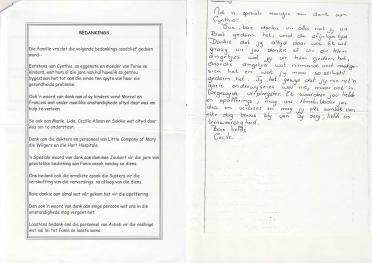 BEDANKINGS
Die familie vra dat die volgende bedankings asseblief gedoen
word:-
Eerstens aan Cynthia, as eggenote en moeder van Fanie se
kinders, wat hom al die jare van hul huwelik so getrou
bygestaan het tot aan die einde ten spyte van haar eie
omstandighede.
Ook 'n woord van dank aan al sy kinders veral Marcel en
Francois wat onder moeilike omstandighede altyd daar was om
hulp te verleen.
So ook aan Marie, Lida, Cecile Alleen en Sakkie wat altyd daar
was om te ondersteun.
Dank aan die dokters en personeel van Little Company of Mary
die Wilgers en die Hart Hospitale.
'n Spesiale woord van dank aan dominee Joubert vir die jare van
geestelike bediening aan Fanie asook die diens van vandag.
Ons bedank ook die erediens asook die Susters vir die
verskaffing van die verversings na afloop van die diens.
Baie dankie aan almal wat vêr gekom het vir die opoffering.
Dan ook 'n woord van dank aan enige persoon wat ons in die
omstandighede mag vergeet het
Laastens bedank ons die personeel van Avbob vir die reëlings
wat sal lei tot Fanie se laaste wens.
Net 'n spesiale woordjie van dank aan
Cynthia:
Sus, baie dankie vir alles wat jy vir
Boet gedoen het, veral die afgelope tyd.
Dankie dat jy altyd daar was. Ek wil
graag vir jou dankie sê vir die klein
dingetjies wat jy vir hom gedoen het,
daardie dingetjies wat niemand raak
sien het en wat jy maar so stilweg
gedoen het. Jy het gesê dat jy nie net 'n
goeie onderwyseres was nie, maar ook 'n
toegewyde verpleegster. Ek waardeer jou liefde
en opoffering, mag ons Hemelvader jou
dra en vertroos en mag jy elke oomblik van
elke dag bewus bly van Sy sorg, liefde en
teenwoordigheid.
Baie liefde
Cecile.